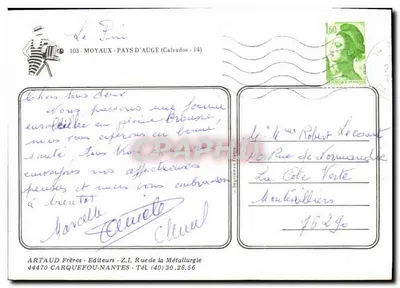 Le Pin
103 - MOYAUX - PAYS D'AUGE (Calvados - 14)
1,60
Chers tous deux
Nous passons une journée
ensoleillée en pleine
nous vous espérons en bonne
santé, tous
envoyons nos affectueuses
pensées et nous vous embrassons
à bientôt
Marcelle
M. Mme Robert
Rue de Normandie
La Côte Verte
Montivilliers
76290
CPAPHIL
ARTAUD Frères - Editeurs - Z.I. Rue de la Métallurgie
44470 CARQUEFOU-NANTES - Tél (40) 30.26.56